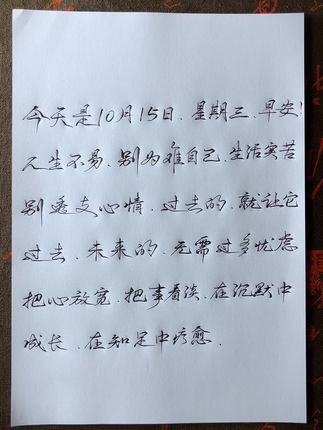 今天是10月15日.星期三.早安!
人生不易.别为难自己.生活实苦
别透支心情.过去的.就让它
过去.未来的.无需过多忧虑
把心放宽.把事看淡.在沉默中
成长.在知足中疗愈.